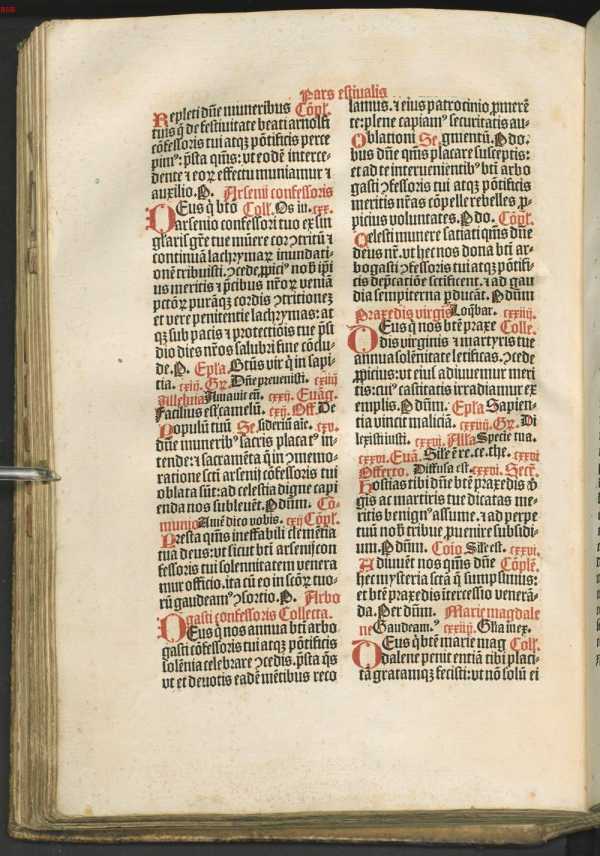 Pars estivalis
Repleti dñe muneribus Cõpl.
tuis q̃ de festiuitate beati arnolfi
cõfessoris tui atqꝫ põtificis perce
pimꝰ: p̃sta q̃ms: vt eodẽ interce-
dente ⁊ eoꝝ effectu muniamur ⁊
auxilio. P. Arsenii confessoris
DEus q̃ btõ Coll. Os in. cxx.
arsenio confessori tuo ex sin
glaris grẽ tue mũere coꝛ ↄtritũ ⁊
continuã lachrymaꝝ inundati-
onẽ tribuisti. ↄcede, ꝓpiciꝰ nob̃ ip̃i
us meritis ⁊ p̃cibus nr̃oꝝ veniã
pctõꝝ purãqꝫ cordis ↄtritionez
et vere penitentie lachrymas: at
qꝫ sub pacis ⁊ protectiõis tue p̃si
dio dies nr̃os salubri fine cõclu-
de. P. Epl̃a. Btũs vir q̃ in sapi-
tia. cxiij. Gr̃. Dñe preuenisti. cxiiij
Alleluia Amauit eũ. cxxij. Euãg.
Facilius est camelũ. cxij. Off. De
Populũ tuũ Se. sideriũ aĩe. cxv.
dñe muneribꝰ sacris placatꝰ in-
tende: ⁊ sacramẽta q̃ in ↄmemo-
ratione scti arsenij cõfessoris tui
oblata sũt: ad celestia digne capi
enda nos subleuẽt. P dũm. Cõ-
munio Amẽ dico vobis. cxij Cõpl.
Presta q̃ms ineffabili clemẽtia
tua deus: vt sicut btĩ arsenij con
fessoris tui solennitatem venera
mur officio. ita cũ eo in scõꝝ tuo-
rũ gaudeamꝰ ↄsortio. P. Arbo
gasti confessoris Collecta.
DEus q̃ nos annua btĩ arbo
gasti cõfessoris tui atqꝫ põtificis
solẽnia celebrare ↄcedis. p̃sta q̃s
vt et deuotis eadẽ mẽtibus reco
lamus. ⁊ eius patrocinio ꝓmerẽ
te: plene capiamꝰ securitatis au-
Oblationi Se. gmentũ. P do.
bus dñe q̃ms placare susceptis:
et ad te interuenientibꝰ btĩ arbo
gasti ↄfessoris tui atqꝫ põtificis
meritis nr̃as cõpelle rebelles ꝓ-
picius voluntates. P do. Cõpl.
Celesti munere satiati q̃ms dñe
deus nr̃. vt hec nos dona btĩ ar-
bogasti ↄfessoris tui atqꝫ põtifi-
cis dep̃catiõe sctificent. ⁊ ad gau
dia sempiterna ꝓducãt. P dũm
Praxedis virgĩs Loq̃bar. cxxiiij.
DEus q̃ nos btẽ praxe Colle.
dis virginis ⁊ martyris tue
annua solẽnitate letificas. ↄcede
ꝓpicius: vt eius adiuuemur meri
tis: cuiꝰ castitatis irradiamur ex
emplis. P dũm. Epl̃a Sapien-
tia vincit maliciã. cxxviij. Gr̃. Di
lexisti iusti. cxxvij. All̃a Specie tua.
cxxvi. Euã. Sil̃e ẽ re. ce. the. cxxvi
Offerto. Diffusa est. cxxvi. Secẽ.
Hostias tibi dñe btẽ praxedis v̾
gis ac martiris tue dicatas me-
ritis benignꝰ assume. ⁊ ad perpe
tuũ nob̃ tribue ꝓuenire subsidi-
um. P dũm. Cõio Sil̃e est. cxxvi.
Adiuuẽt nos q̃ms dñe Cõplẽ.
hec mysteria scẽa q̃ sumpsimus:
et btẽ praxedis itercessio venerã-
da. Per dñm. Marie magdale
ne Gaudeam.ꝰ cxxiiij. Gl̃ia in ex.
DEus q̃ btẽ marie mag Coll.
dalene penitentiã tibi placi-
tã gratamqꝫ fecisti: vt nõ solũ ei